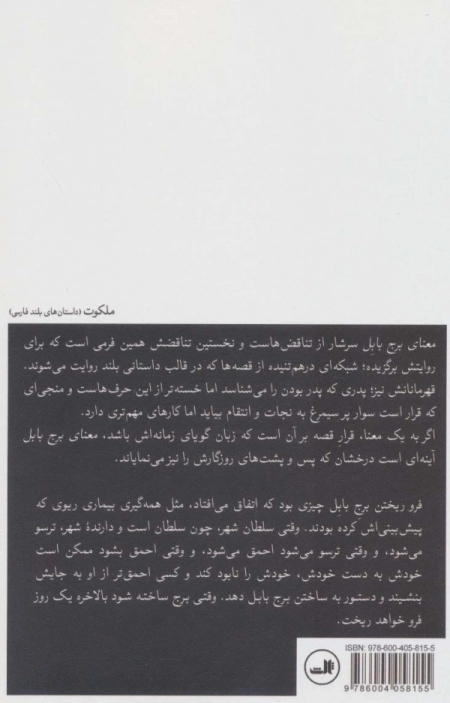 ملکوت (داستان‌های بلند فارسی)
معنای برج بابل سرشار از تناقض‌هاست و نخستین تناقضش همین فرمی است که برای
روایتش برگزیده؛ شبکه‌ای درهم‌تنیده از قصه‌ها که در قالب داستانی بلند روایت می‌شوند.
قهرمانانش نیز؛ پدری که پدر بودن را می‌شناسد اما خسته‌تر از این حرف‌هاست و منجی‌ای
که قرار است سوار پر سیمرغ به نجات و انتقام بیاید اما کارهای مهم‌تری دارد.
اگر به یک معنا، قرار قصه بر آن است که زبان گویای زمانه‌اش باشد، معنای برج بابل
آینه‌ای است درخشان که پس و پشت‌های روزگارش را نیز می‌نمایاند.
فرو ریختن برج بابل چیزی بود که اتفاق می‌افتاد، مثل همه‌گیری بیماری ریوی که
پیش‌بینی‌اش کرده بودند. وقتی سلطان شهر، چون سلطان است و دارندهٔ شهر، ترسو
می‌شود، و وقتی ترسو می‌شود احمق می‌شود، و وقتی احمق بشود ممکن است
خودش به دست خودش، خودش را نابود کند و کسی احمق‌تر از او به جایش
بنشیند و دستور به ساختن برج بابل دهد. وقتی برج ساخته شود بالاخره یک روز
فرو خواهد ریخت.
ISBN: 978-600-405-815-5
9 786004 058155
ثالث